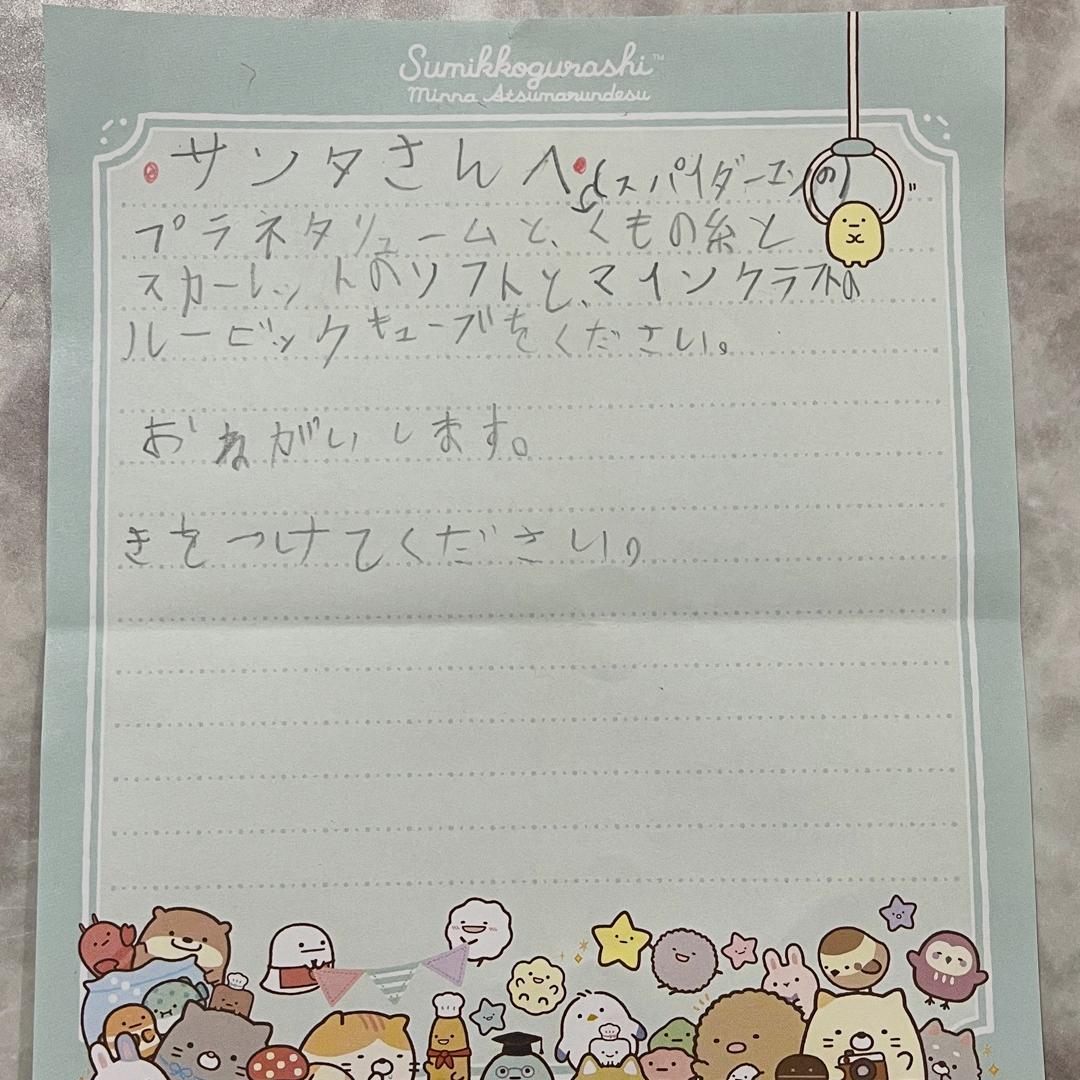 Sumikkogurashi™
Minna Atsumarundesu
サンタさんへ(スパイダーマンの)
プラネタリュームと、くもの糸と
スカーレットのソフトと、マインクラフトの
ルービックキューブをください。
おねがいします。
きをつけてください。